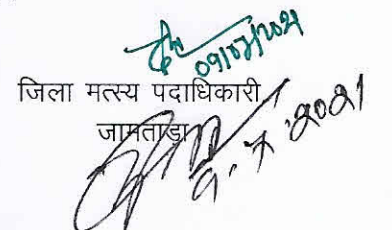 09/07/2021
जिला मत्स्य पदाधिकारी
जामताड़ा
9.7.2021